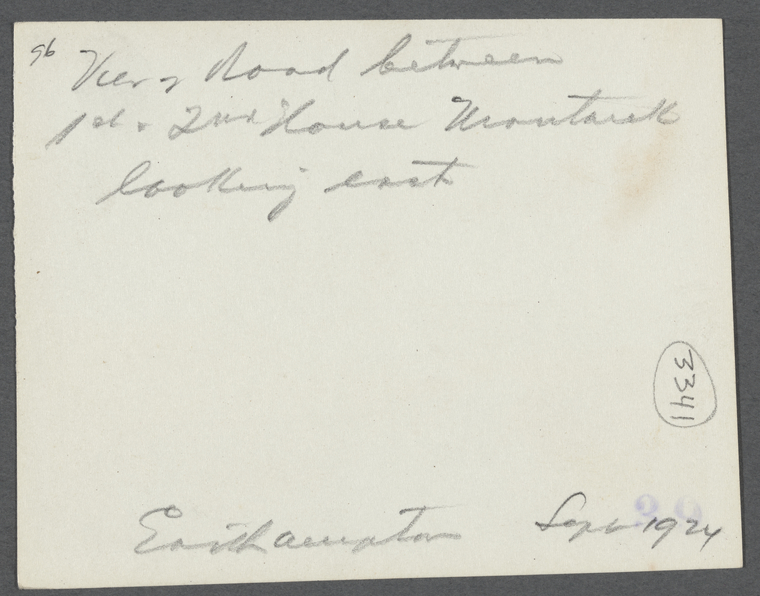 96
View of Road between
1st & 2nd House Montauk
looking east
3341
Easthampton Sept 1924
29